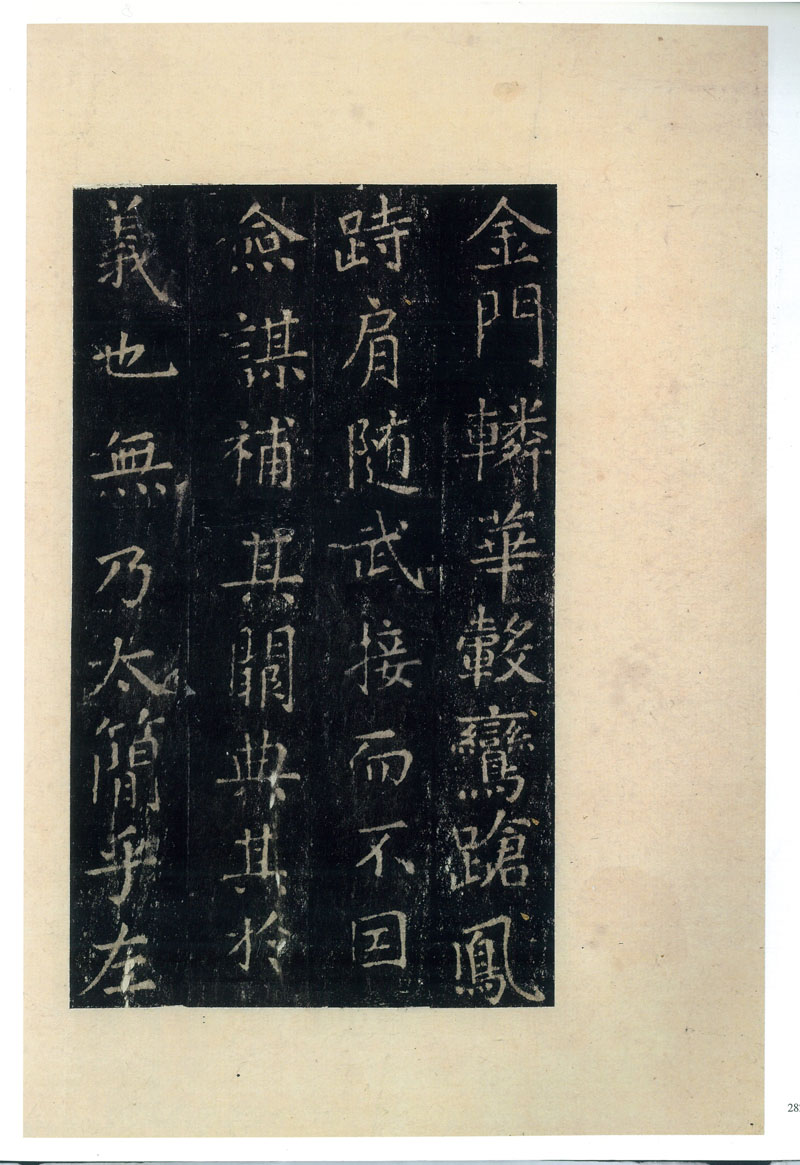 金門轔華轂鸞蹌鳳
跱肩随武接而不囙
僉謀補其闕典其扵
義也無乃太簡乎左
28